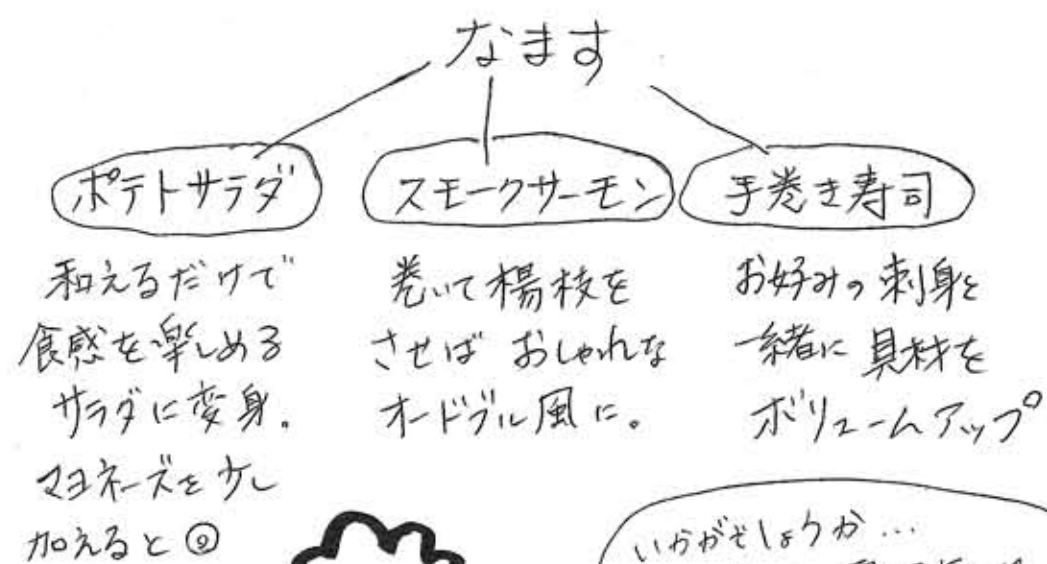 なます
ポテトサラダ
和えるだけで
食感を楽しめる
サラダに変身。
マヨネーズを少し
加えると
スモークサーモン
巻いて楊枝を
させば おしゃれな
オードブル風に。
手巻き寿司
お好みの刺身と
一緒に 具材を
ボリュームアップ
いかがでしょうか…